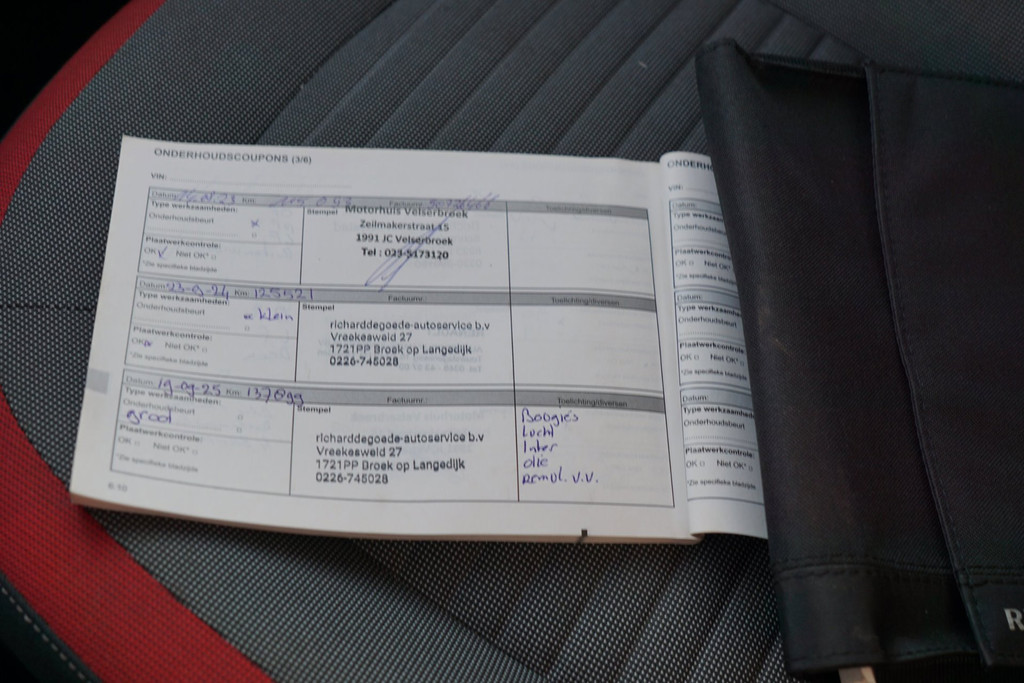 ONDERHOUDSCOUPONS (3/6)
VIN:
Datum: Km: Factuurnr.: Toelichting/diversen
Type werkzaamheden:
Onderhoudsbeurt x
Stempel
Motorhuis Velserbroek
Zeilmakerstraat 15
1991 JC Velserbroek
Tel : 023-5173120
Plaatwerkcontrole:
OK V Niet OK*
*Zie specifieke bladzijde
Datum: 23-9-24 Km: 125521 Factuurnr.: Toelichting/diversen
Type werkzaamheden:
Onderhoudsbeurt x klein
Stempel
richarddegoede-autoservice b.v
Vreekesweid 27
1721PP Broek op Langedijk
0226-745028
Plaatwerkcontrole:
OK Niet OK*
*Zie specifieke bladzijde
Datum: 19-09-25 Km: 137899 Factuurnr.: Toelichting/diversen
Type werkzaamheden:
Onderhoudsbeurt
groot
Stempel
richarddegoede-autoservice b.v
Vreekesweid 27
1721PP Broek op Langedijk
0226-745028
Boogies
Lucht
Inter
olie
remvl. v.v.
Plaatwerkcontrole:
OK Niet OK*
*Zie specifieke bladzijde
6.10
ONDERH
VIN:
Datum:
Type werkzaamhe
Onderhoudsbeurt
Plaatwerkcontrole
OK Niet OK*
*Zie specifieke bladzijde
Datum:
Type werkzaamhe
Onderhoudsbeurt
Plaatwerkcontrole
OK Niet OK*
*Zie specifieke bladzijde
Datum:
Type werkzaamhed
Onderhoudsbeurt
Plaatwerkcontrole
OK Niet OK*
*Zie specifieke bladzijde
R